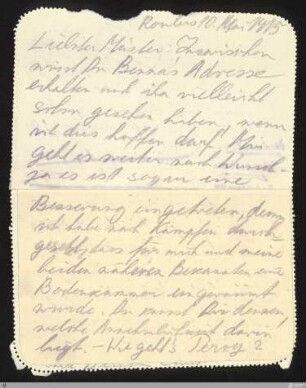 10. Mai 1945
Liebster Máster: Inzwischen
wirst Du Benna's Adresse
erhalten und ihn vielleicht
schon gesehen haben, wenn
ich dies hoffen darf. Mir
geht es weiter nach Wunsch
ja es ist sogar eine
Besserung eingetreten, denn
ich habe nach Kämpfen durch
gesetzt, dass für mich und meine
beiden näheren Bekannten eine
Bodenkammer eingeräumt
wurde. Du kannst Dir denken,
welche Annehmlichkeit darin
liegt. - Wie geht's Percy?